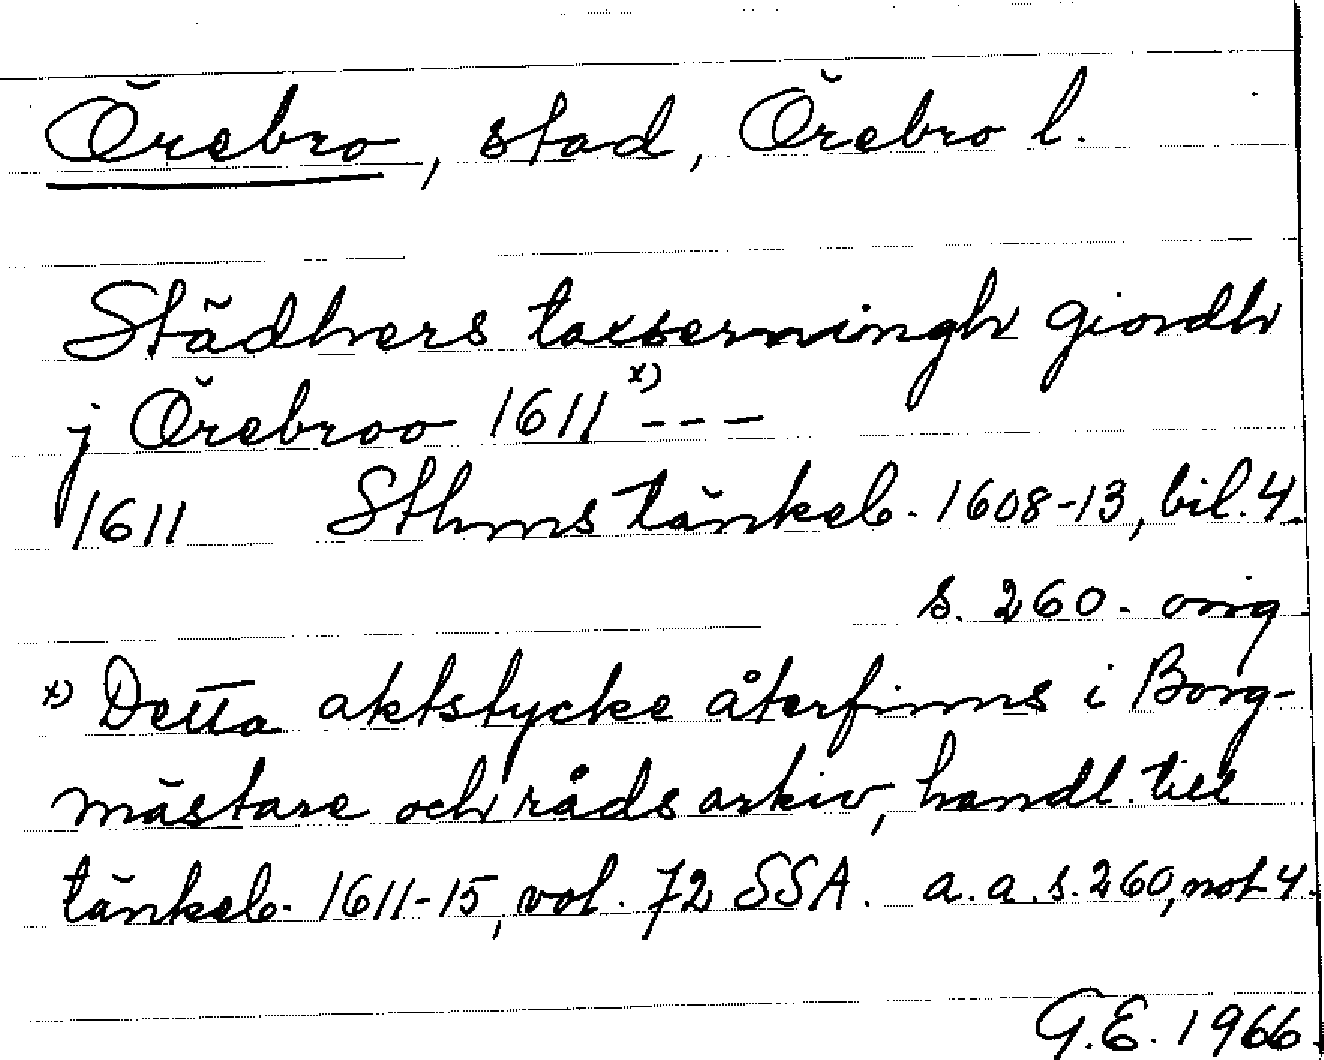 Örebro, stad, Örebro l.
Städhers taxserningh giordh
j Örebroo 1611 x) ---
1611 Sthms tänkeb. 1608-13, bil. 4.
s. 260. orig
x) Detta aktstycke återfinns i Borg-
mästare och råds arkiv, handl. till
tänkeb. 1611-15, vol. 72 SSA. a.a. s. 260, not 4.
G.E. 1966.